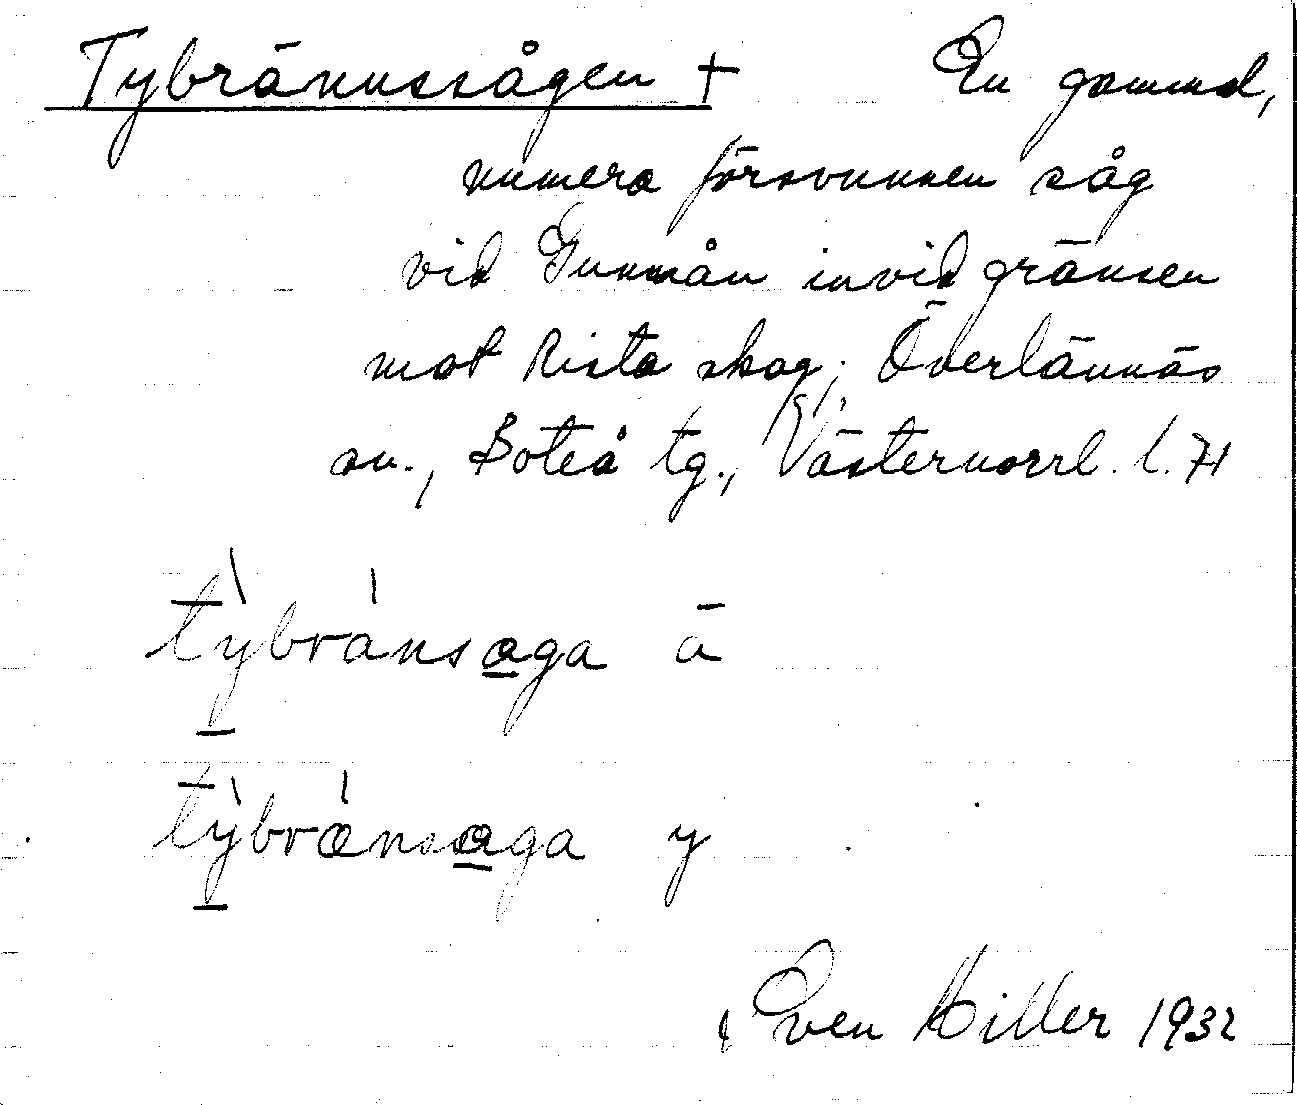 Tybrännssågen + En gammal,
numera försvunnen såg
vid Gunnån invid gränsen
mot Rista skog; Överlännäs
sn., Boteå tg., Västernorrl. l. 71
tỳ̱bránsa̱ga ä
tỳ̱brǽnsa̱ga y
Sven Hiller 1932